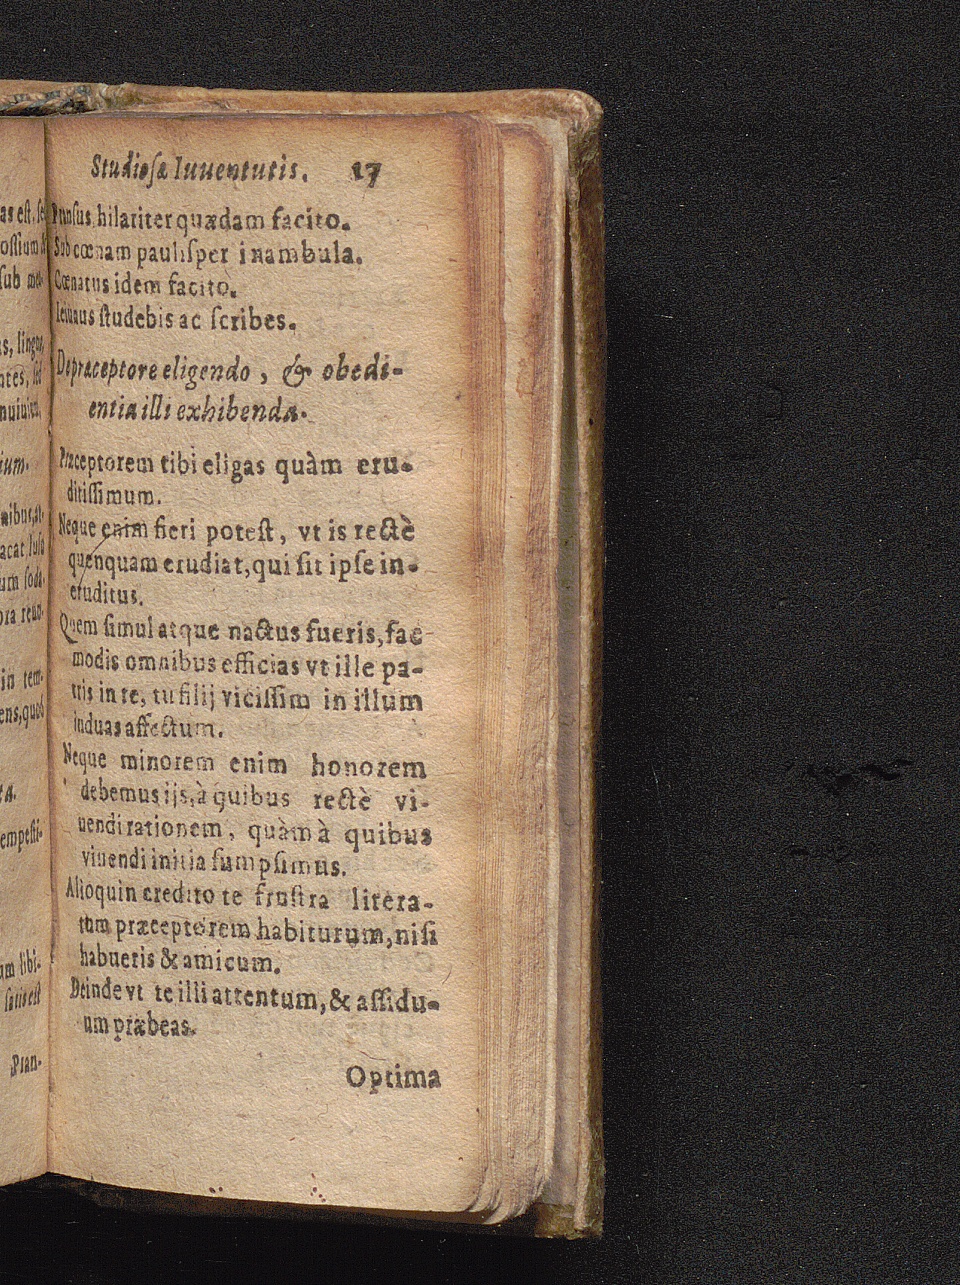 Studiosæ Iuuentutis. 17
Pransus, hilariter quædam facito.
Sub cœnam paulisper inambula.
Cœnatus idem facito.
Ieiunus studebis ac scribes.
De præceptore eligendo, & obedi-
entia illi exhibenda.
Præceptorem tibi eligas quàm eru-
ditissimum.
Neque enim fieri potest, vt is rectè
quenquam erudiat, qui sit ipse in-
eruditus.
Quem simul atque nactus fueris, fac
modis omnibus efficias vt ille pa-
tris in te, tu filij vicissim in illum
induas affectum.
Neque minorem enim honorem
debemus ijs, à quibus rectè vi-
uendi rationem, quàm à quibus
viuendi initia sumpsimus.
Alioquin credito te frustra litera-
tum præceptorem habiturum, nisi
habueris & amicum.
Deinde vt te illi attentum, & assidu-
um præbeas.
Optima